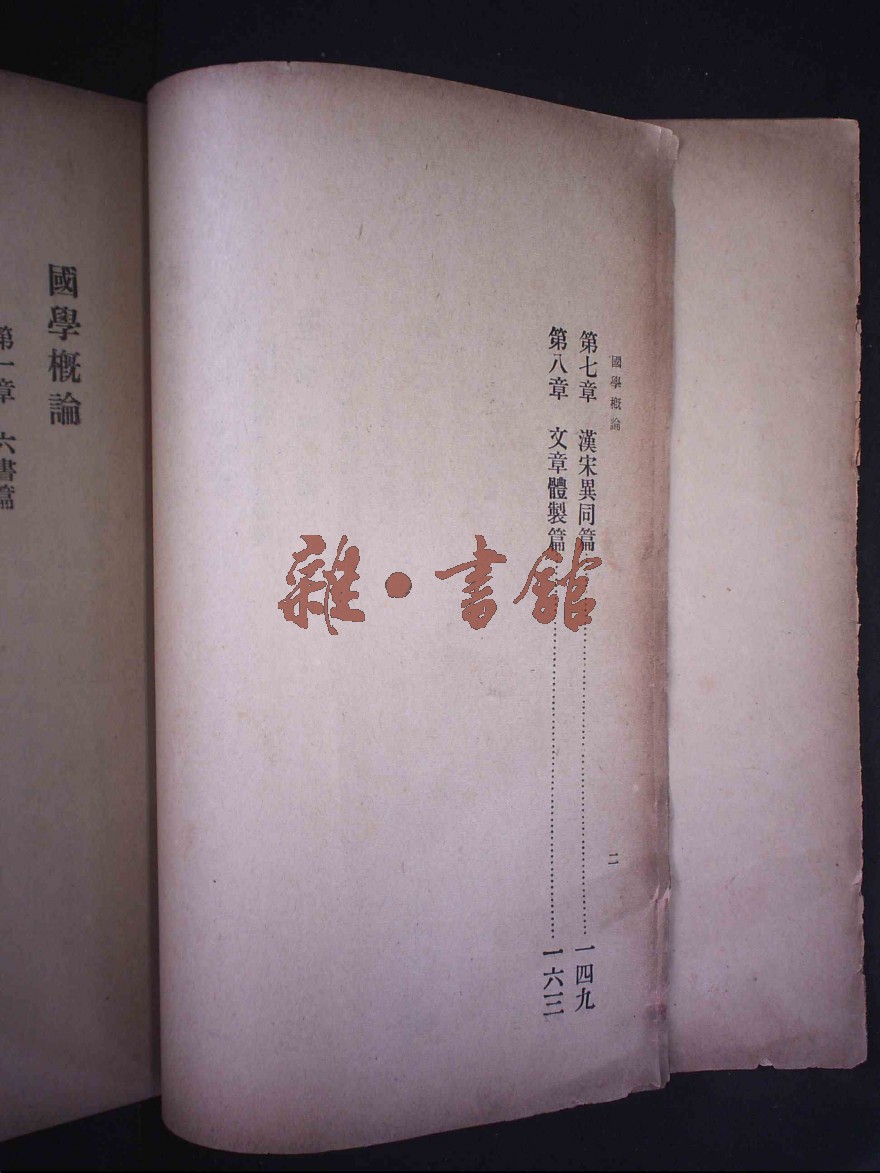 國學概論
第七章 漢宋異同篇……一四九
第八章 文章體製篇……一六三
二
國學概論
第一章 六書篇
雜·書館